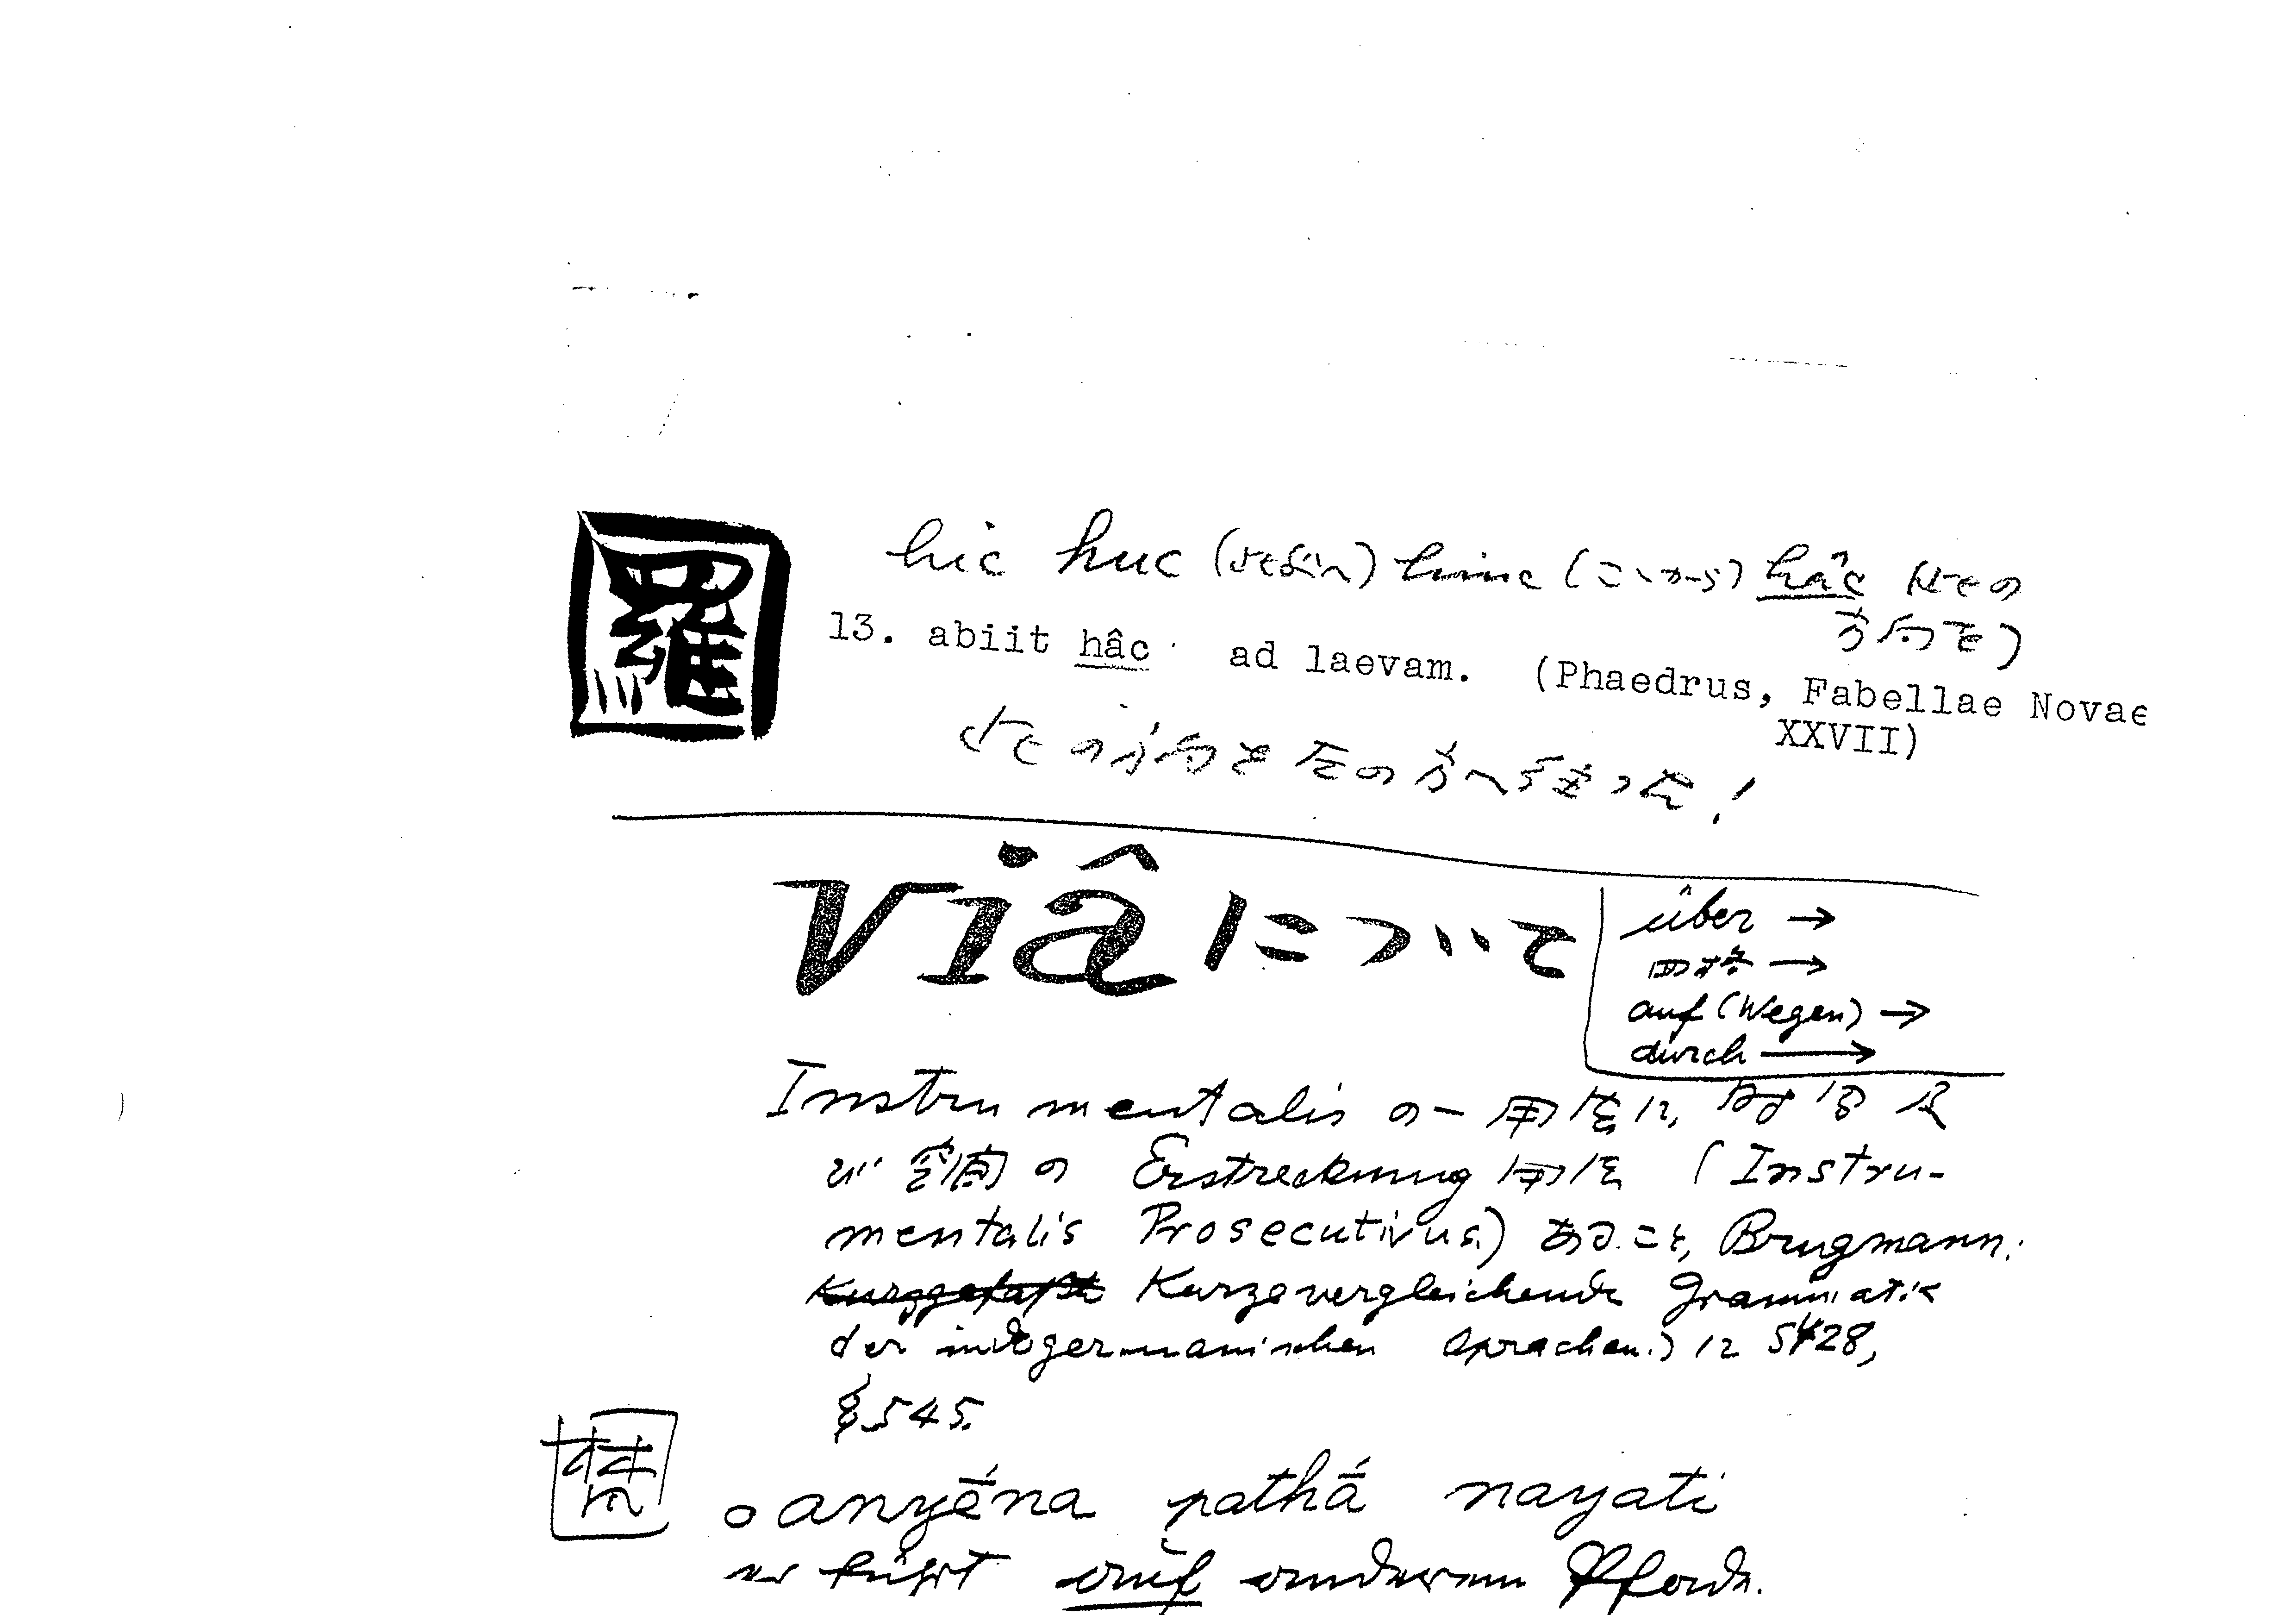 羅
hic huc (此処へ) hinc (ここから) hâc 此の
方角を)
13. abiit hâc ad laevam. (Phaedrus, Fabellae Novae
XXVII)
此の方角を左の方へ行った!
viâ について
über →
→
auf (Wegen) →
durch →
Instrumentalis の一用法に, 時間及
び空間の Erstreckung 用法 (Instru-
mentalis Prosecutivus) あること, Brugmann:
Kurzgefaßte Kurze vergleichende Grammatik
der indogermanischen Sprachen.) に S428,
§545.
梵
○ anyéna pathá nayati
er führt auf anderem Pfade.